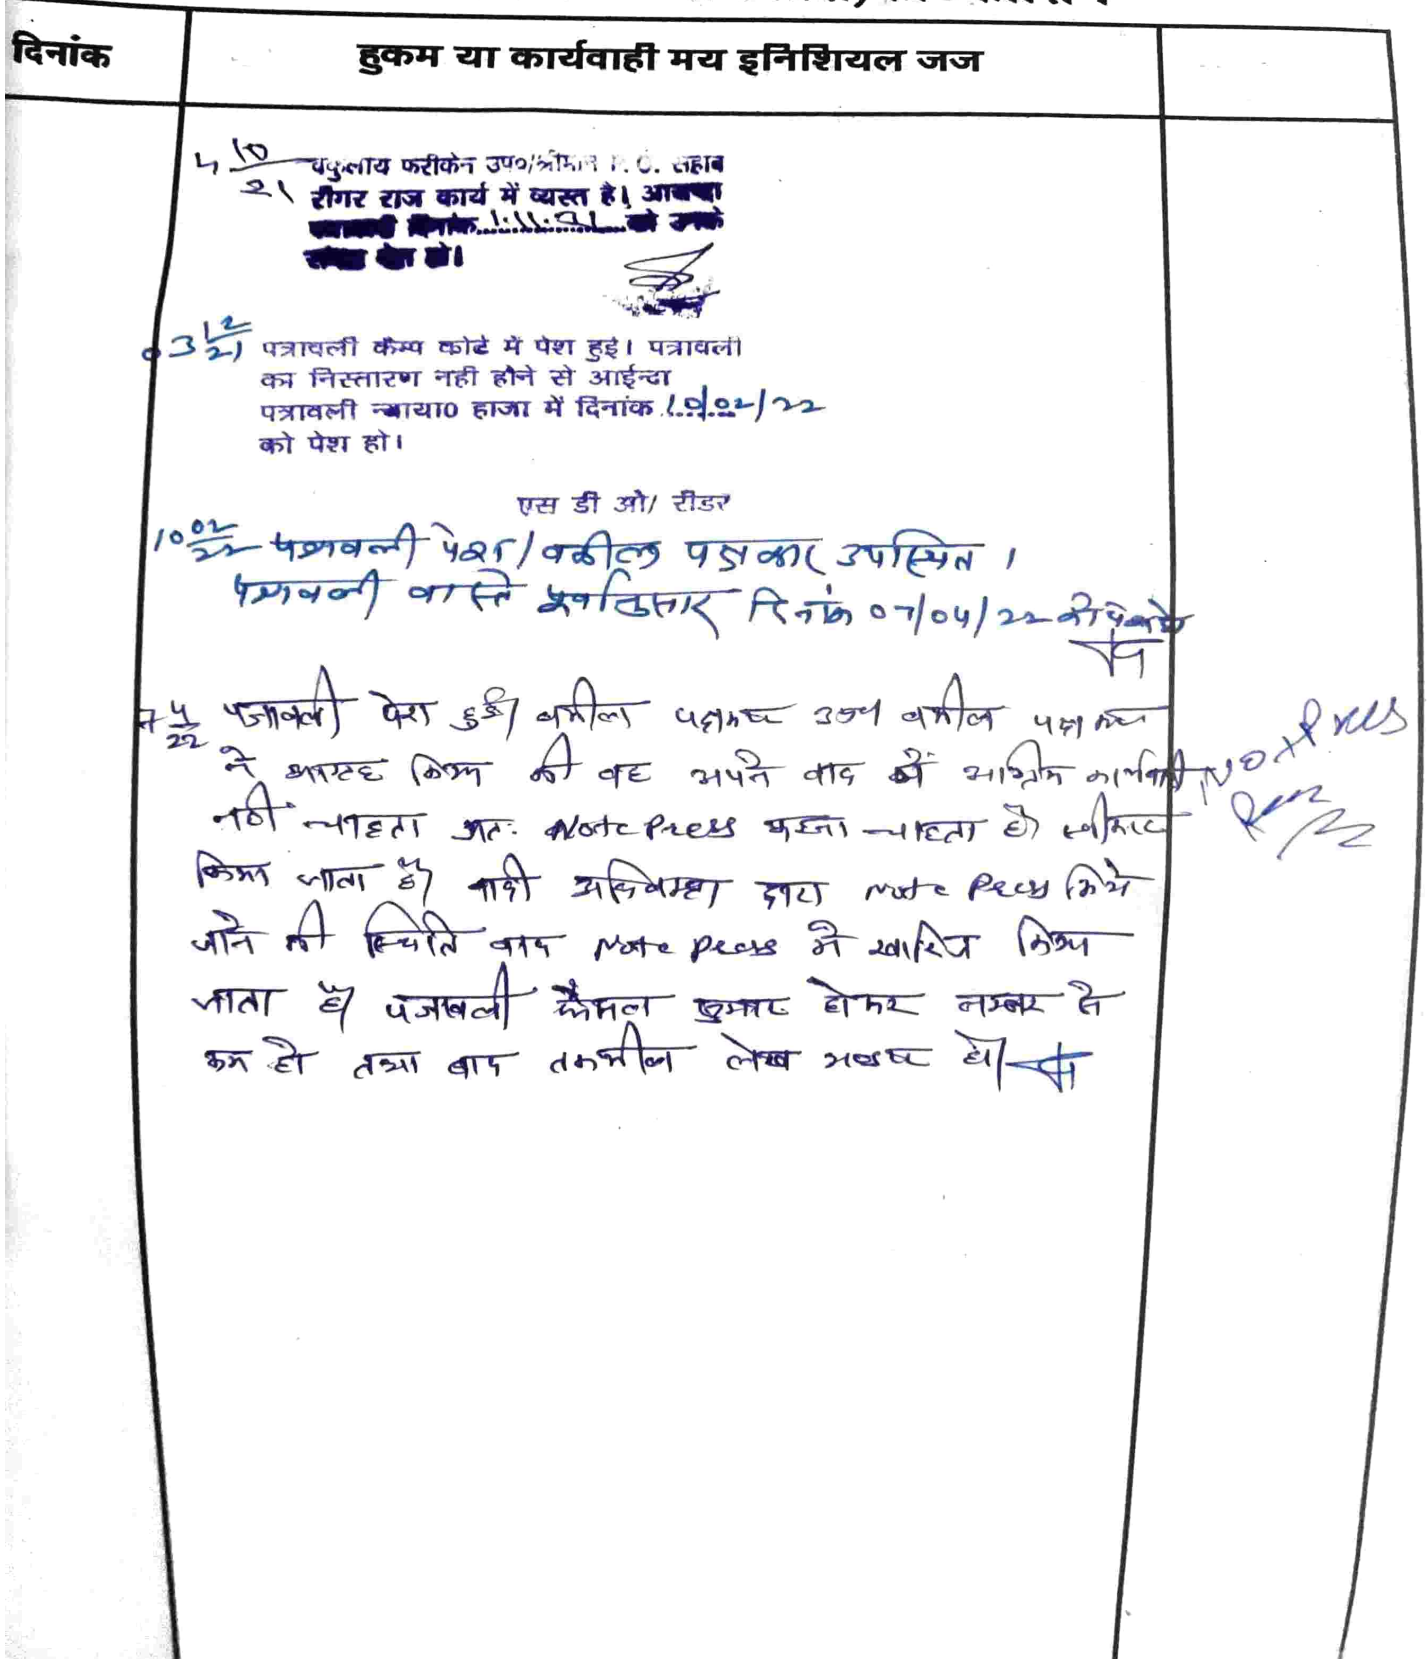 दिनांक
हुकम या कार्यवाही मय इनिशियल जज
4 10/21 वकुलाय फरीकेन उप०/श्रीमान P.O. सहाब
रीगर राज कार्य में व्यस्त है। आयन्दा
दिनांक 1.11.21 को उनके
पेश हो।
03 12/21 पत्रावली कैम्प कोर्ट में पेश हुई। पत्रावली
का निस्तारण नही होने से आईन्दा
पत्रावली न्याया0 हाजा में दिनांक 10/02/22
को पेश हो।
एस डी ओ/ रीडर
10 02/22 पत्रावली पेश/वकील पक्षकार उपस्थित ।
पत्रावली वास्ते पूर्वानुसार दिनांक 07/04/22 को पेश हो
7 4/22 पत्रावली पेश हुई। वकील पक्षकार उप० वकील पक्षकार
ने किया की वह अपने वाद में अग्रिम कार्यवाही
नही चाहता अतः Note Press करना चाहता है। स्वीकार
किया जाता है। वादी अधिवक्ता द्वारा Note Press किये
जाने की स्थिति वाद Note Press मे खारिज किया
जाता है। पत्रावली फैसल शुमार होकर नम्बर से
कम हो तथा बाद तकमील लेख भण्डार हो।
Not Press